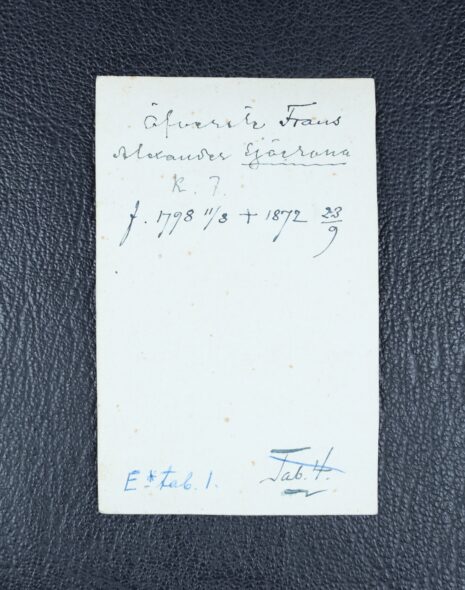 Öfverste Frans
Alexander Sjöcrona
K. 7.
f. 1798 11/3 + 1872 23/9
E* tab. 1. Tab. 4.